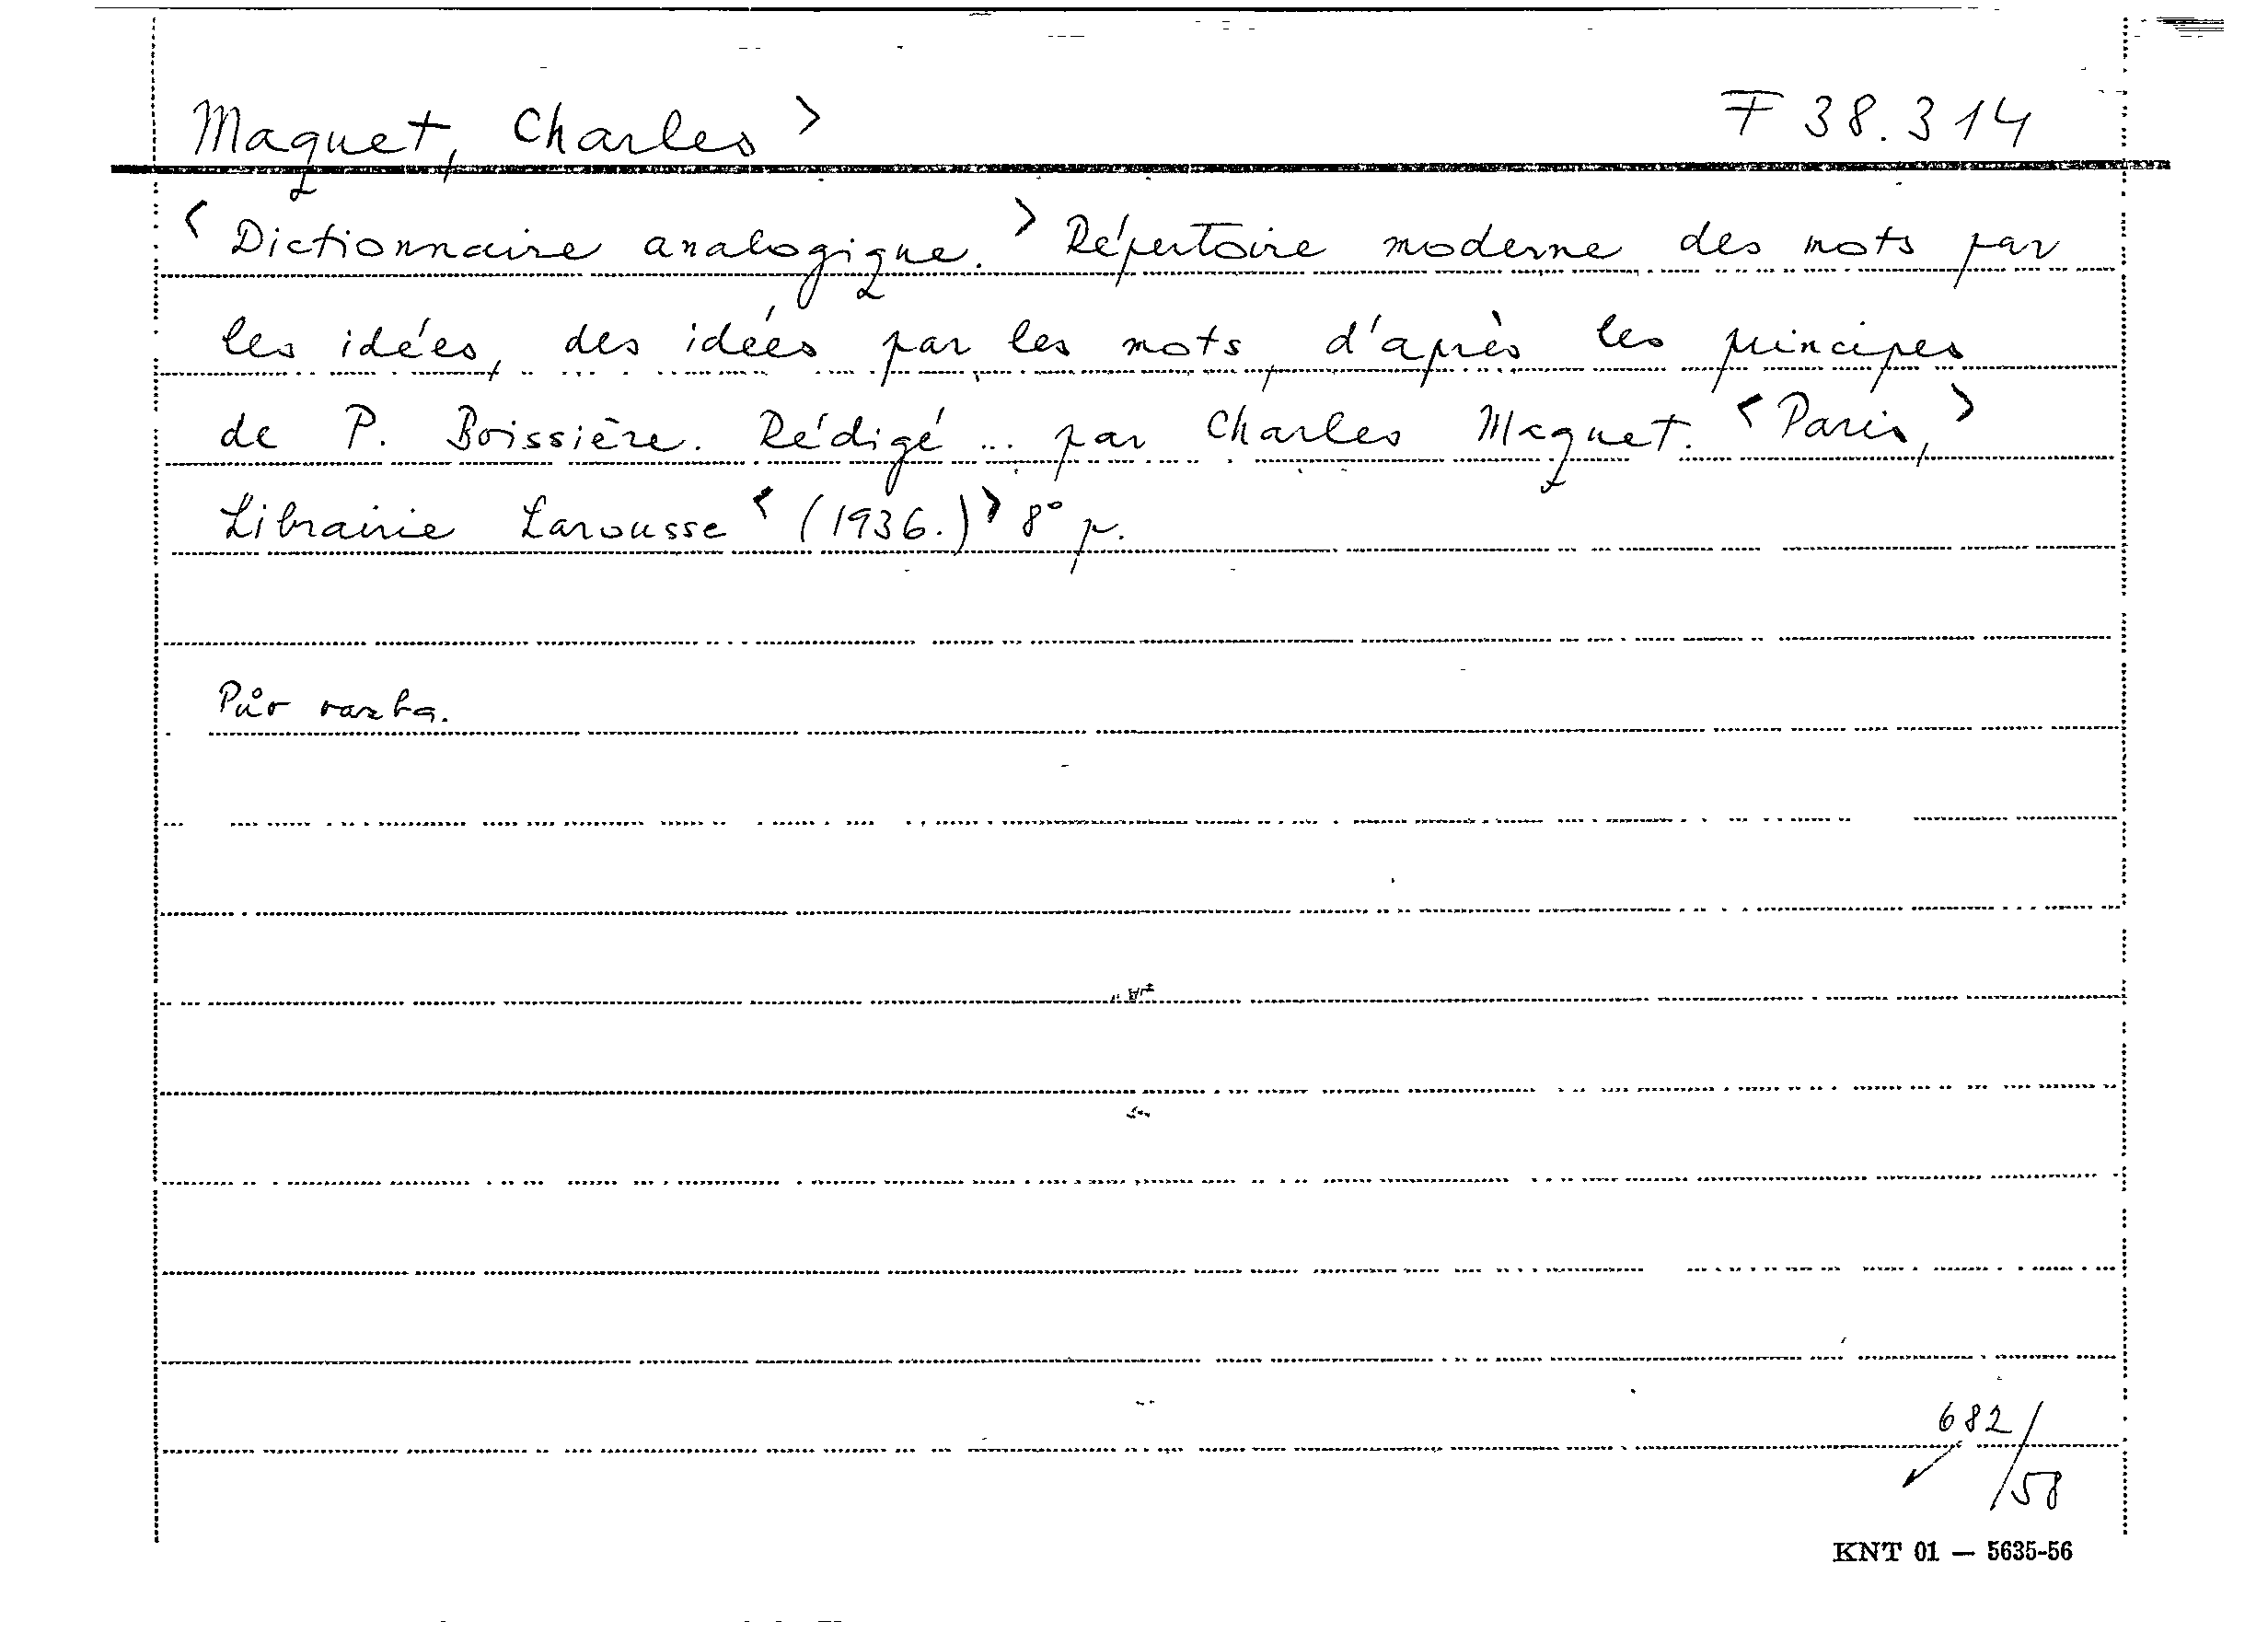 Maquet, Charles > F 38.314
< Dictionnaire analogique. > Répertoire moderne des mots par
les idées, des idées par les mots, d'après les principes
de P. Boissière. Rédigé ... par Charles Maquet. < Paris, >
Librairie Larousse < (1936.) > 8° p.
Pův vazba.
682/58
KNT 01 — 5635-56